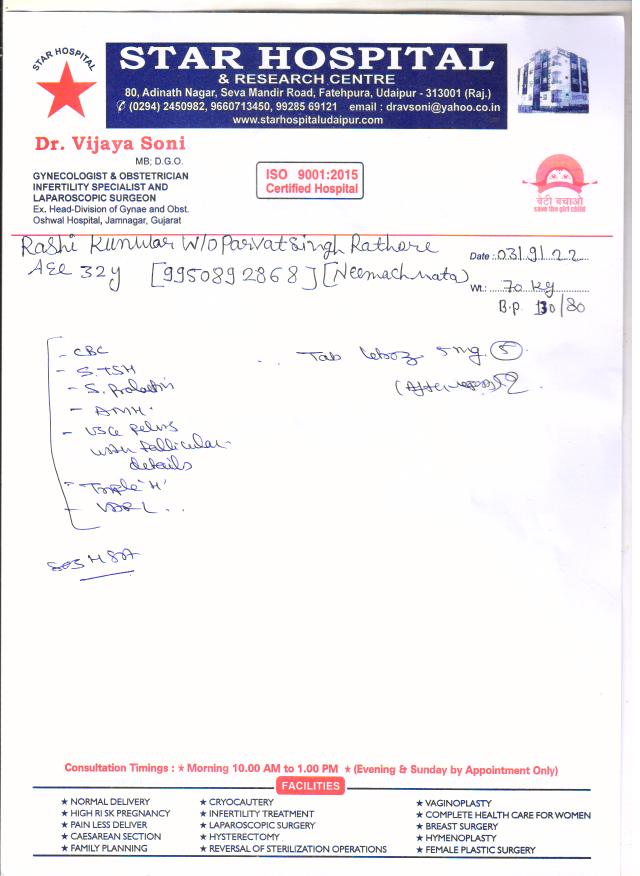 STAR HOSPITAL
STAR HOSPITAL
& RESEARCH CENTRE
80, Adinath Nagar, Seva Mandir Road, Fatehpura, Udaipur - 313001 (Raj.)
(0294) 2450982, 9660713450, 99285 69121 email : dravsoni@yahoo.co.in
www.starhospitaludaipur.com
Dr. Vijaya Soni
MB; D.G.O.
GYNECOLOGIST & OBSTETRICIAN
INFERTILITY SPECIALIST AND
LAPAROSCOPIC SURGEON
Ex. Head-Division of Gynae and Obst.
Oshwal Hospital, Jamnagar, Gujarat
ISO 9001:2015
Certified Hospital
बेटी बचाओ
save the girl child
Rashi Kunwar W/O Parvat Singh Rathore
Date :. 03/9/22
Age 32y [9950892868] [Neemach mata)
Wt.: 70 kg
B.P 130/80
- CBC
- S.TSH
- S. Prolactin
- AMH.
- USG Pelvis
with follicular
details
- Triple 'H'
- VDRL ..
Tab Letroz 5 mg. 5
Consultation Timings : ★ Morning 10.00 AM to 1.00 PM ★ (Evening & Sunday by Appointment Only)
FACILITIES
★ NORMAL DELIVERY ★ CRYOCAUTERY ★ VAGINOPLASTY
★ HIGH RI SK PREGNANCY ★ INFERTILITY TREATMENT ★ COMPLETE HEALTH CARE FOR WOMEN
★ PAIN LESS DELIVER ★ LAPAROSCOPIC SURGERY ★ BREAST SURGERY
★ CAESAREAN SECTION ★ HYSTERECTOMY ★ HYMENOPLASTY
★ FAMILY PLANNING ★ REVERSAL OF STERILIZATION OPERATIONS ★ FEMALE PLASTIC SURGERY